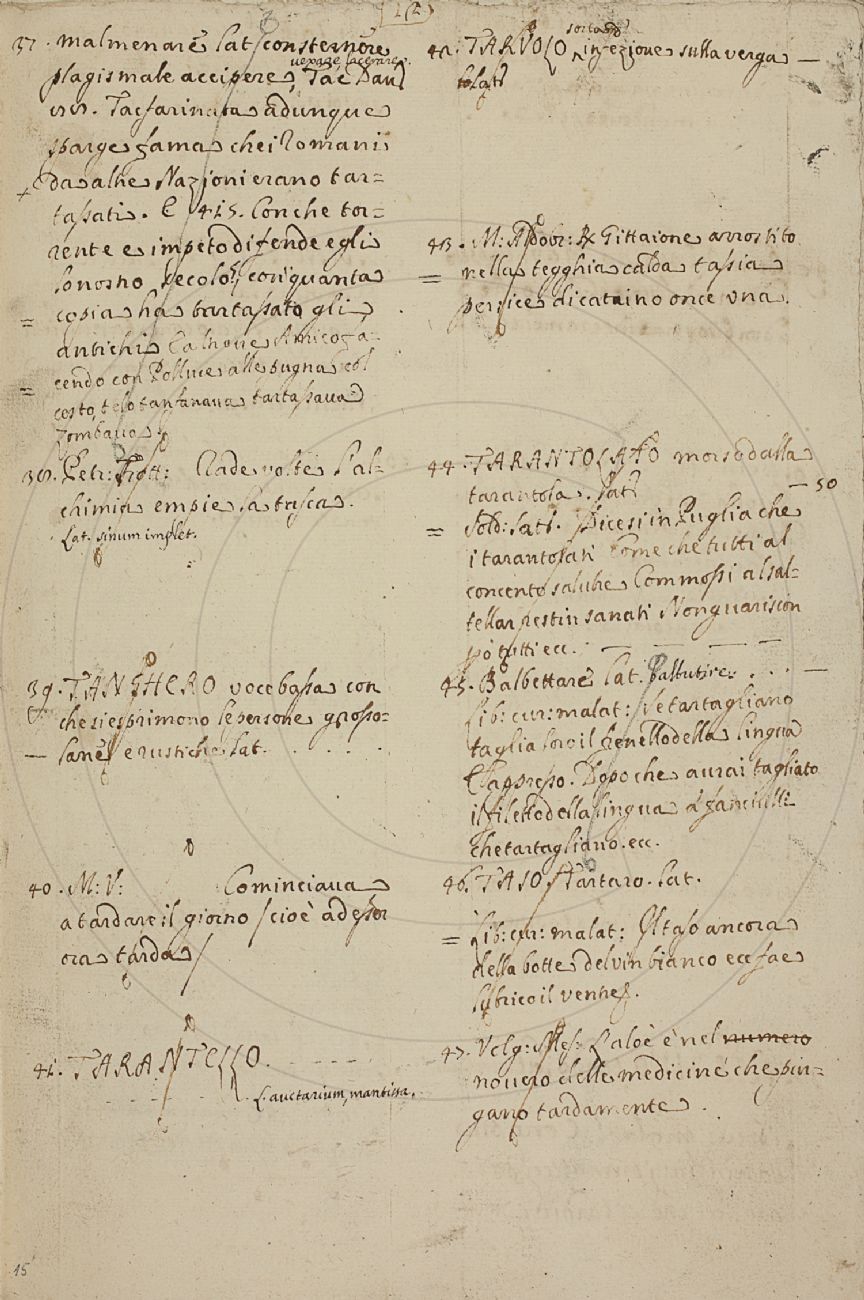 37. malmenare Lat. consternere
vexare, lacerare.
plagis male accipere, Tac. Dav.
Tacfarinata adunque
sparge fama che i Romani
da altre Nazioni erano tar=
tassati. E 415. Con che tor=
rente e impeto difende egli
lo nostro secolo, con quanta
cosia ha tartassato gli
antichi
cendo con Polluce alle pugna col
costo, te lo tanfanava tartassava
zombava
38. Petr: Lade volte l'al=
chimia empie la tasca.
Lat. sinum implet.
39. TANGHERO voce bassa con
che si esprimono le persone grosso=
lane, e rustiche Lat. . . . .
40. M: V: Cominciava
a tardare il giorno / cioè ad esser
ora tarda /
41. TARANTELLO. - - - -
L. auctarium, mantissa.
15
42. TARUOLO sorta d'
infezione sulla verga —
43. M: Aldobr: Gittaione arrostito
nella tegghia calda tassia
once una.
44. TARANTOLATO morso dalla
tarantola. Lat. — 50
Sold: Sat. Dicesi in Puglia che
i tarantolati Come che tutti al
concento saltare Commossi al sal=
tellar restin sanati Non guariscon
però tutti ecc. — — — —
45. Balbettare Lat. Balbutire. . . . —
Lib: cur: malat: Se tartagliano
taglia loro il frenello della lingua
E appresso. Dopo che aurai tagliato
il filetto della lingua a fanciulli
che tartagliano. ecc.
46. TASO Tartaro. Lat.
Lib: cur: malat: Il taso ancora
della botte del vin bianco ecc fae
lubrico il ventre.
47. Volg: Mes: L'aloè è nel numero
novero delle medicine che pur=
gano tardamente.